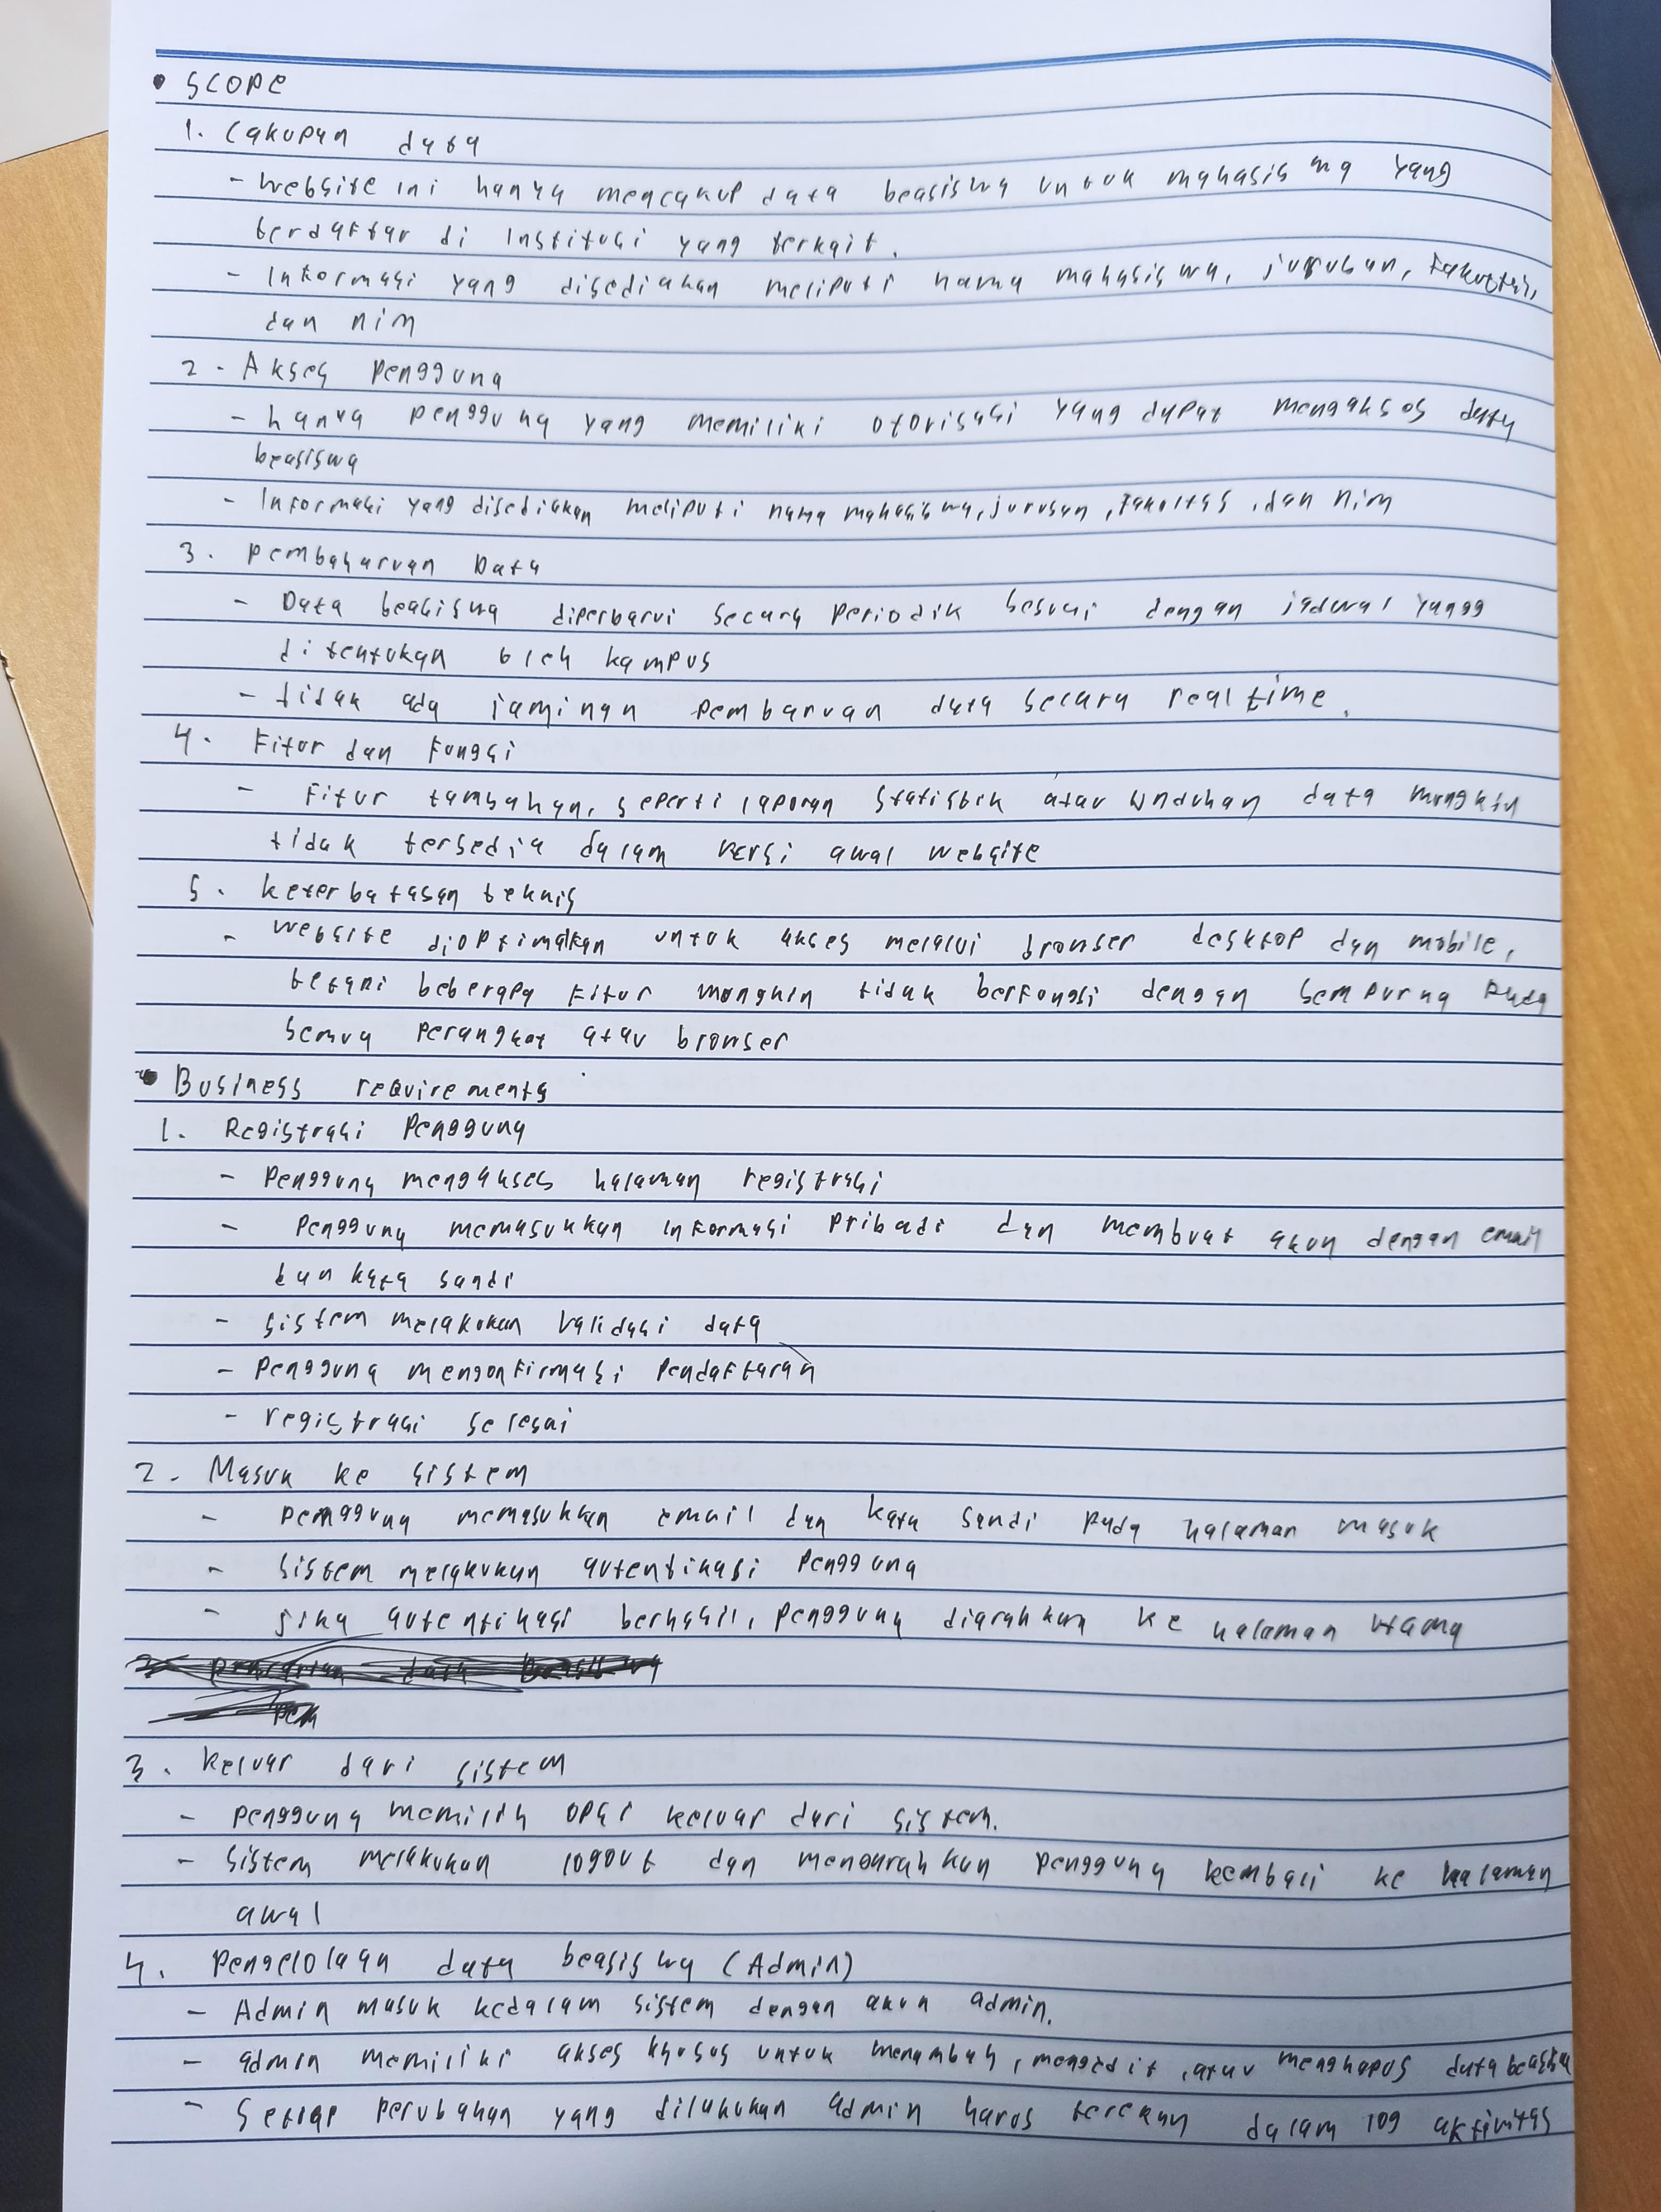 • SCOPE
1. Cakupan data
- Website ini hanya mencakup data beasiswa untuk mahasiswa yang
terdaftar di Institusi yang terkait.
- Informasi yang disediakan meliputi nama mahasiswa, jurusan, fakultas,
dan nim
2. Akses pengguna
- hanya pengguna yang memiliki otorisasi yang dapat mengakses data
beasiswa
- Informasi yang disediakan meliputi nama mahasiswa, jurusan, fakultas, dan nim
3. Pembaharuan Data
- Data beasiswa diperbarui secara periodik sesuai dengan jadwal yangg
ditentukan oleh kampus
- tidak ada jaminan pembaruan data secara real time.
4. Fitur dan Fungsi
- Fitur tambahan, seperti laporan statistik atau unduhan data mungkin
tidak tersedia dalam versi awal website
5. keterbatasan teknis
- website dioptimalkan untuk akses melalui browser desktop dan mobile,
tetapi beberapa fitur mungkin tidak berfungsi dengan sempurna pada
semua perangkat atau browser
• Business requirements
1. Registrasi Pengguna
- Pengguna mengakses halaman registrasi
- Pengguna memasukkan informasi pribadi dan membuat akun dengan email
dan kata sandi
- sistem melakukan validasi data
- Pengguna mengonfirmasi Pendaftaran
- registrasi selesai
2. Masuk ke sistem
- pengguna memasukkan email dan kata sandi pada halaman masuk
- sistem melakukan autentikasi Pengguna
- jika autentikasi berhasil, pengguna diarahkan ke halaman utama
3. keluar dari sistem
- pengguna memilih opsi keluar dari sistem.
- sistem melakukan logout dan mengarahkan pengguna kembali ke halaman
awal
4. pengelolaan data beasiswa (Admin)
- Admin masuk kedalam sistem dengan akun admin.
- admin memiliki akses khusus untuk menambah, mengedit, atau menghapus data beasiswa
- Setiap perubahan yang dilakukan admin harus terekam dalam log aktivitas